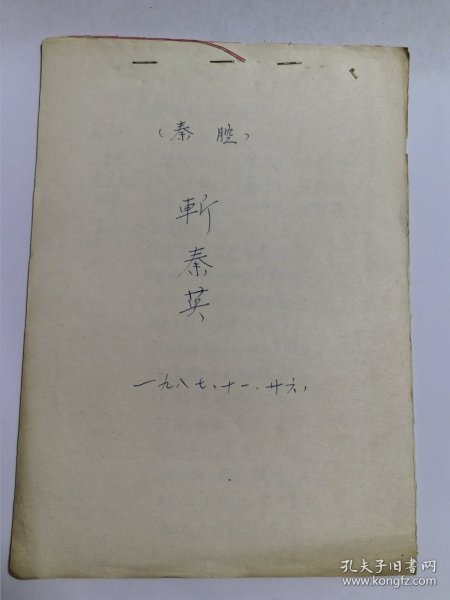 （秦腔）
斬
秦
英
一九八七、十一、廿六、
孔夫子旧书网
www.kongfz.com